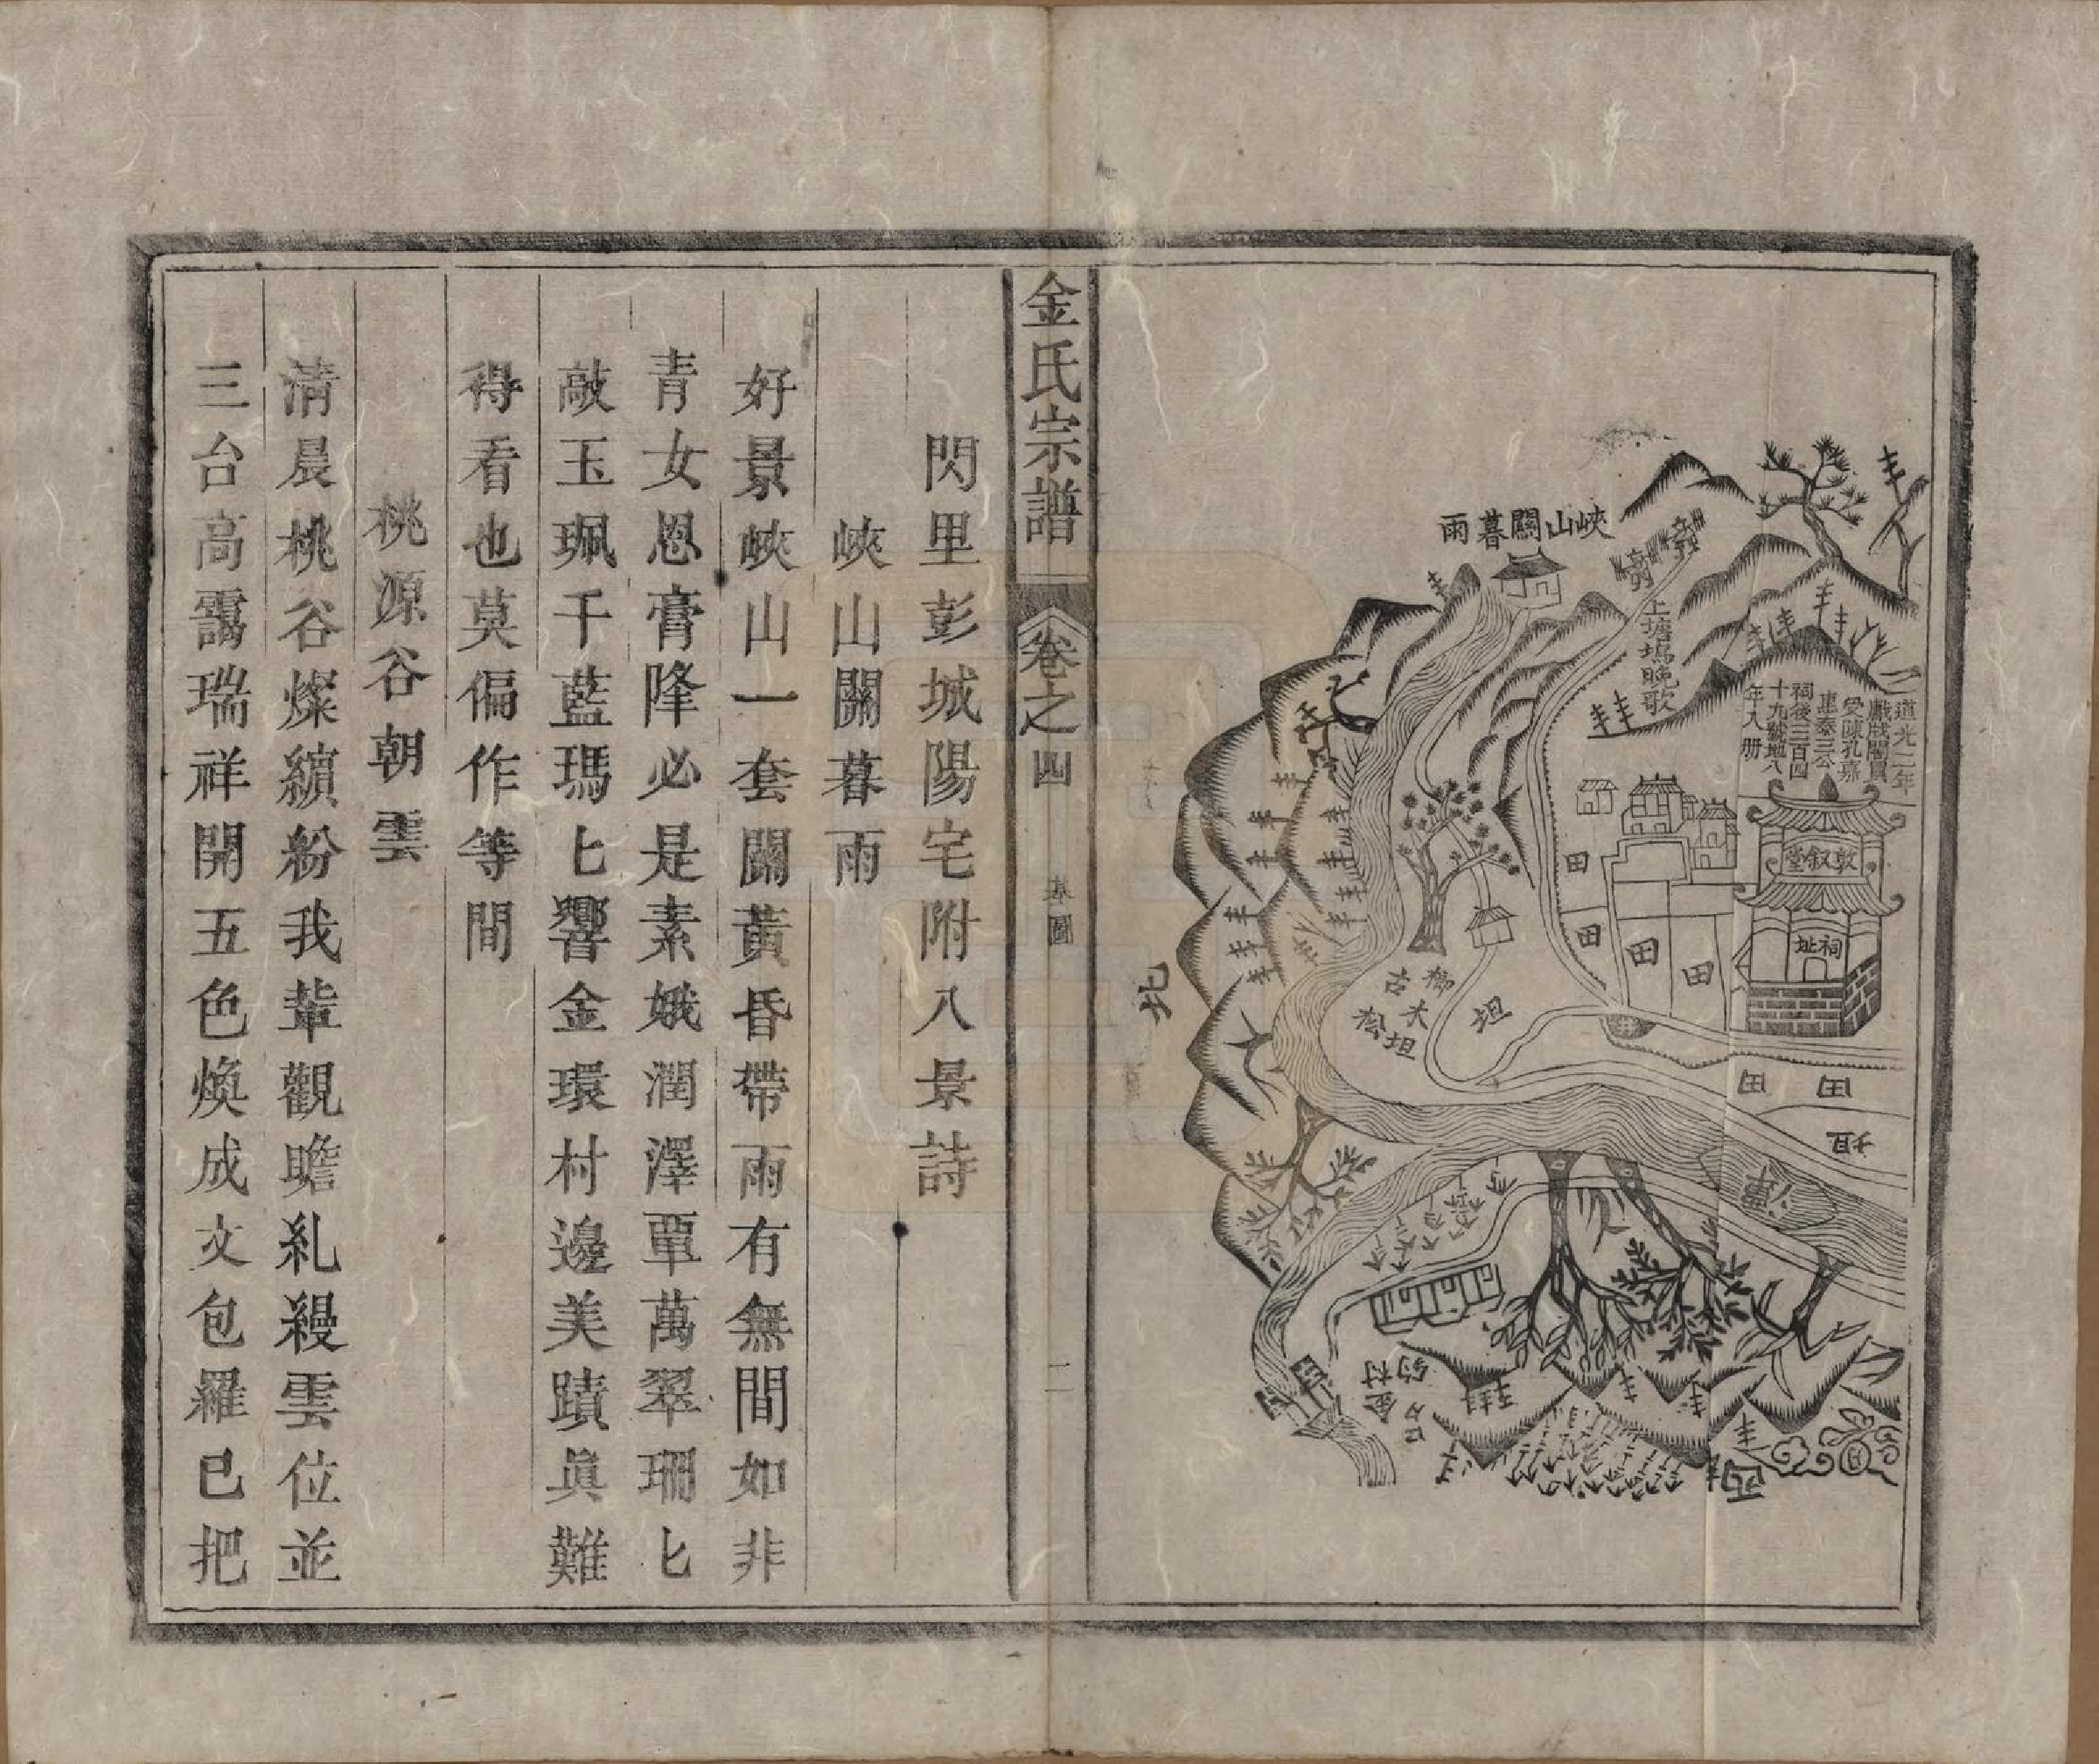 峽山關暮雨
上塘塢晚歌
道光二年
戲戲閣買
受陳孔嘉
惠泰三公
祠後三百四
十九號地八
年入册
敦叙堂
祠址
田
田
田
田
田
田
坦
坦
潭
井
北
西
月
金村
金氏宗譜
卷之四
基圖
二
閃里彭城陽宅附八景詩
峽山關暮雨
好景峽山一套關黃昏帶雨有無間如非
青女恩膏降必是素娥潤澤覃萬翠珊匕
敲玉珮千藍瑪匕響金環村邊美蹟眞難
得看也莫偏作等間
桃源谷朝雲
清晨桃谷燦繽紛我輩觀瞻糺縵雲位並
三台高靄瑞祥開五色煥成文包羅已把